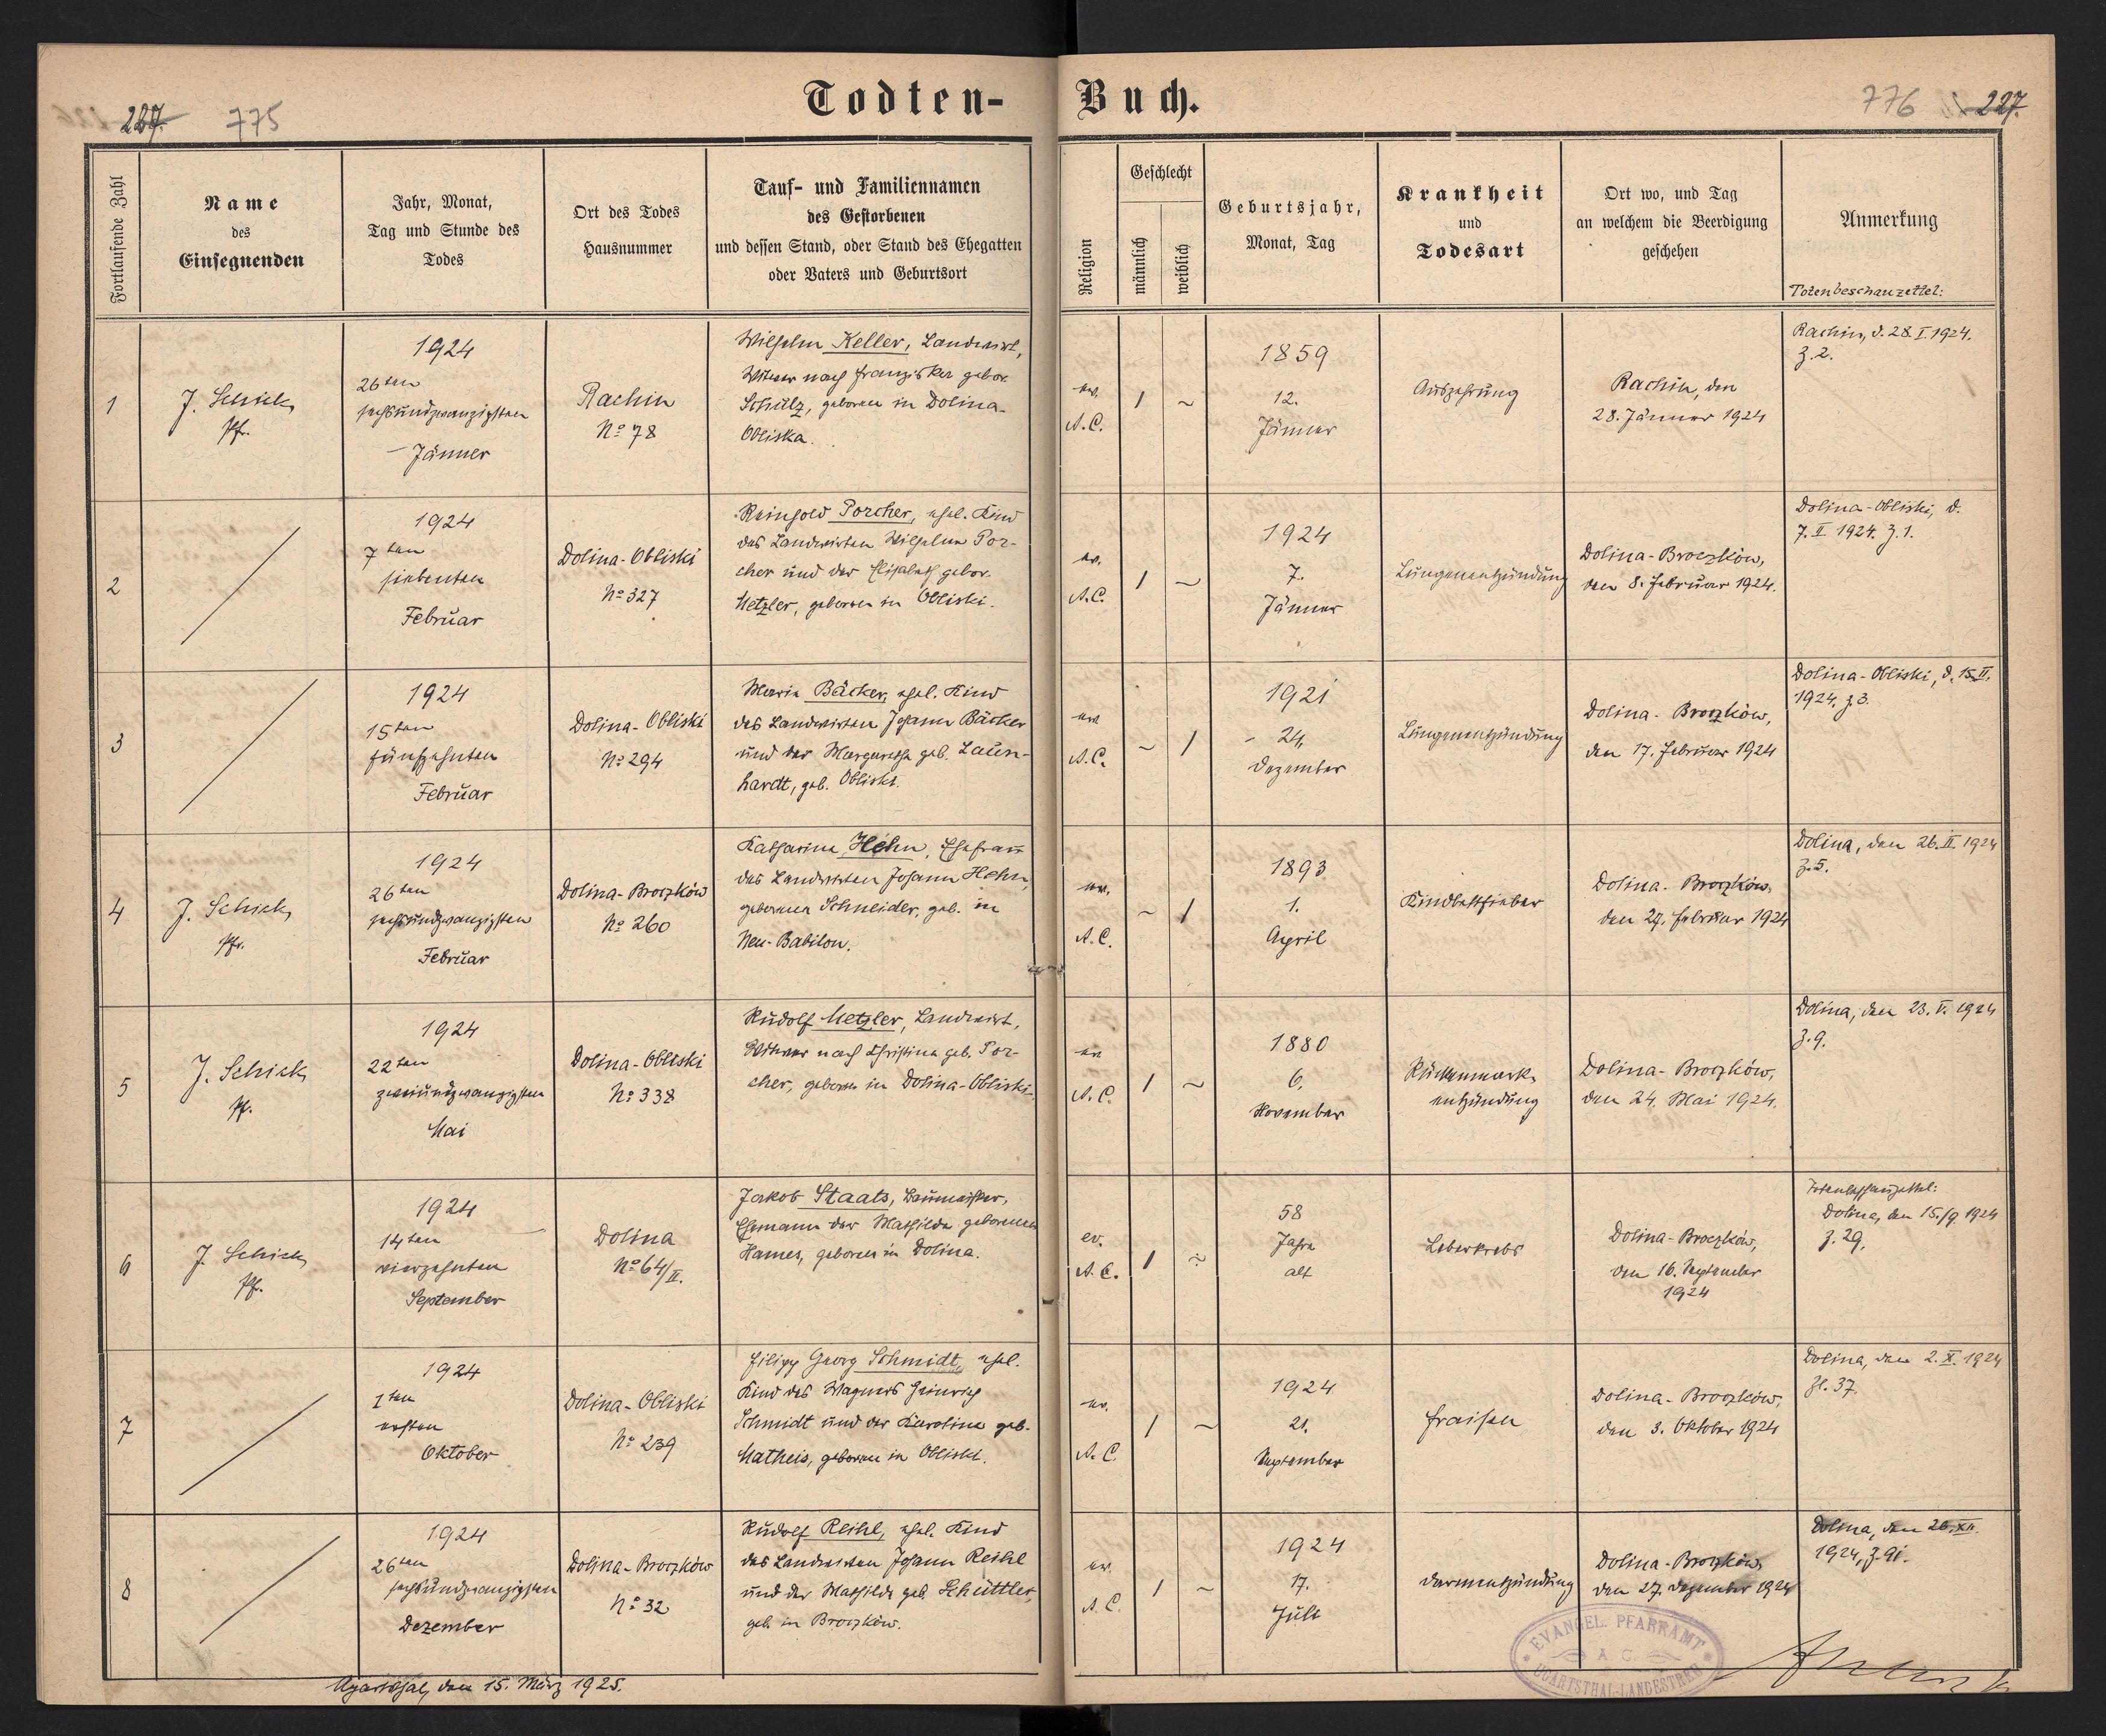 Todten-Buch.
227. 775
776 227.
Fortlaufende Zahl
Name
des
Einsegnenden
Jahr, Monat,
Tag und Stunde des
Todes
Ort des Todes
Hausnummer
Tauf- und Familiennamen
des Gestorbenen
und dessen Stand, oder Stand des Ehegatten
oder Vaters und Geburtsort
Religion
Geschlecht
männlich
weiblich
Geburtsjahr,
Monat, Tag
Krankheit
und
Todesart
Ort wo, und Tag
an welchem die Beerdigung
geschehen
Anmerkung
Totenbeschauzettel:
1
J. Schick
Pf.
1924
26ten
sechsundzwanzigsten
Jänner
Rachin
No 78
Wilhelm Keller, Landwirt,
Witwer nach Franziska gebor.
Schülz, geboren in Dolina-
Obliska.
ev.
A.C.
1 ~
1859
12.
Jänner
Auszehrung
Rachin, den
28. Jänner 1924
Rachin, d. 28.I.1924.
Z.2.
2
1924
7ten
siebenten
Februar
Dolina-Obliski
No 327
Reinhold Porcher, ehel. Kind
des Landwirten Wilhelm Por-
cher und der Elisabeth gebor.
Metzler, geboren in Obliski.
ev.
A.C.
1 ~
1924
7.
Jänner
Lungenentzündung
Dolina-Broczków,
den 8. Februar 1924.
Dolina-Obliski, d.
7.II 1924. Z.1.
3
1924
15ten
fünfzehnten
Februar
Dolina-Obliski
No 294
Maria Bäcker, ehel. Kind
des Landwirten Johann Bäcker
und der Margaretha geb. Laun-
hardt, geb. Obliski.
ev.
A.C.
~ 1
1921
24.
Dezember
Lungenentzündung
Dolina-Broczków,
den 17. Februar 1924
Dolina-Obliski, d. 15.II.
1924. Z.3.
4
J. Schick,
Pfr.
1924
26ten
sechsundzwanzigsten
Februar
Dolina-Broczków
No 260
Katharina Hehn, Ehefrau
des Landwirten Johann Hehn,
geborener Schneider, geb. in
Neu-Babilon.
ev.
A.C.
~ 1
1893
1.
April
Kindbettfieber
Dolina-Broczków,
den 29. Februar 1924
Dolina, den 26.II 1924
Z.5.
5
J. Schick
Pf.
1924
22ten
zweiundzwanzigsten
Mai
Dolina-Obliski
No 338
Rudolf Metzler, Landwirt,
Witwer nach Christina geb. Por-
cher, geboren in Dolina-Obliski.
ev.
A.C.
1 ~
1880
6.
November
Rückenmark-
entzündung
Dolina-Broczków,
den 24. Mai 1924.
Dolina, den 23.V.1924
Z.9.
6
J. Schick
Pf.
1924
14ten
vierzehnten
September
Dolina
No 64/II.
Jakob Staats, Baumeister,
Ehemann der Mathilde geborenen
Hames, geboren in Dolina.
ev.
A.C.
1 ~
58
Jahre
alt
Leberkrebs
Dolina-Broczków,
den 16. September
1924
Totenbeschauzettel:
Dolina, den 15./9. 1924
Z.29.
7
1924
1ten
ersten
Oktober
Dolina-Obliski
No 239
Filipp Georg Schmidt, ehel.
Kind des Wagners Heinrich
Schmidt und der Karolina geb.
Matheis, geboren in Obliski.
ev.
A.C.
1 ~
1924
21.
September
Fraisen
Dolina-Broczków,
den 3. Oktober 1924
Dolina, den 2.X.1924
Zl.37.
8
1924
26ten
sechsundzwanzigsten
Dezember
Dolina-Broczków
No 32
Rudolf Reihl, ehel. Kind
des Landwirten Johann Reihl
und der Mathilde geb. Schüttler,
geb. in Broczków.
ev.
A.C.
1 ~
1924
17.
Juli
Darmentzündung
Dolina-Broczków
den 27. Dezember 1924
Dolina, den 26.XII.
1924, Z.91.
Ugartsthal, den 15. März 1925.
EVANGEL. PFARRAMT
A C.
UGARTSTHAL-LANDESTREU